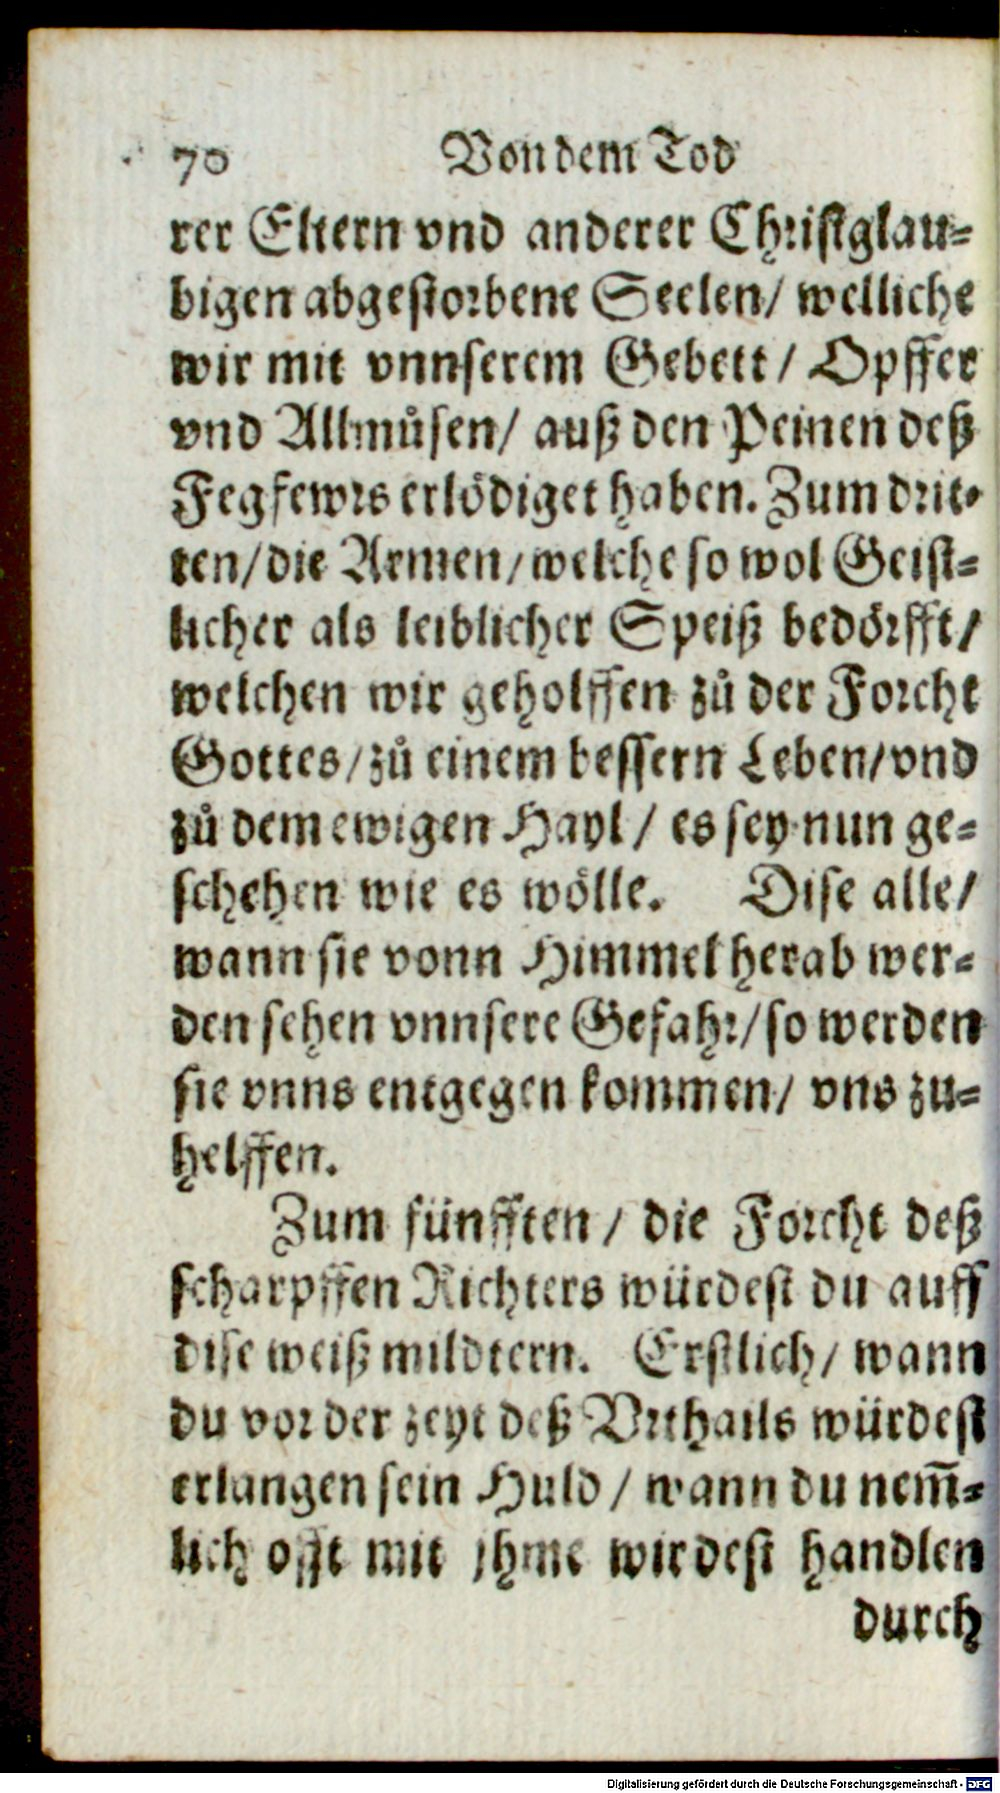 70 Von dem Tod
rer Eltern vnd anderer Christglau-
bigen abgestorbene Seelen/ welliche
wir mit vnnserem Gebett/ Opffer
vnd Allmůsen/ auß den Peinen deß
Fegfewrs erlödiget haben. Zum drit-
ten/ die Armen/ welche so wol Geist-
licher als leiblicher Speiß bedörfft/
welchen wir geholffen zů der Forcht
Gottes/ zů einem bessern Leben/ vnd
zů dem ewigen Hayl/ es sey nun ge-
schehen wie es wölle. Dise alle/
wann sie vonn Himmel herab wer-
den sehen vnnsere Gefahr/ so werden
sie vnns entgegen kommen/ vns zu-
helffen.
Zum fünfften/ die Forcht deß
scharpffen Richters würdest du auff
dise weiß mildtern. Erstlich/ wann
du vor der zeyt deß Vrthails würdest
erlangen sein Huld/ wann du nem̅-
lich offt mit jhme wirdest handlen
durch
Digitalisierung gefördert durch die Deutsche Forschungsgemeinschaft - DFG